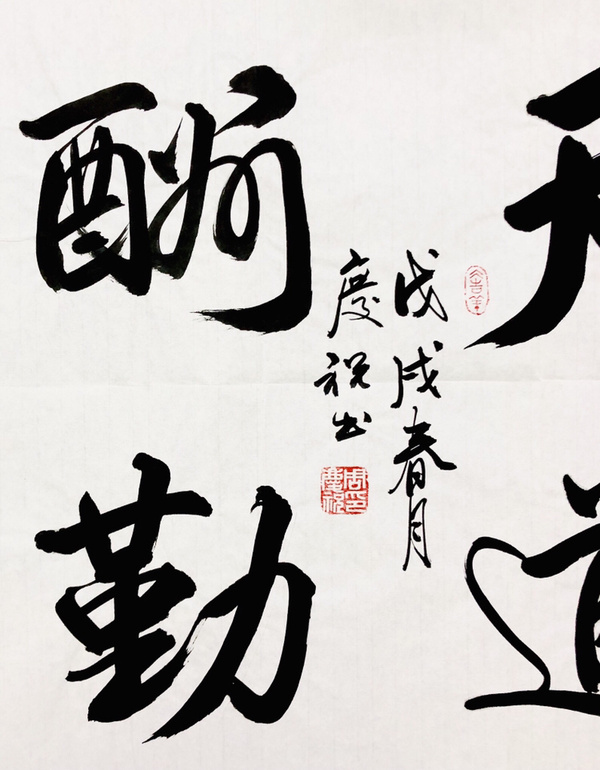 天道
戊戌春月
慶祝书
周印慶祝
酬勤